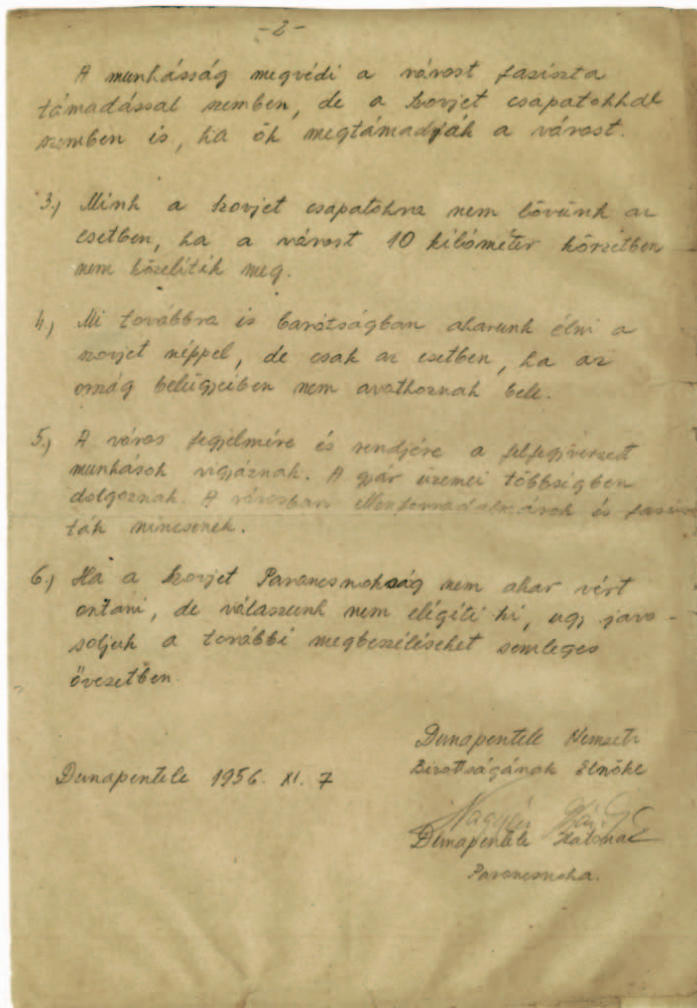 -2-
A munkásság megvédi a várost fasiszta
támadással szemben, de a szovjet csapatokkal
szemben is, ha ők megtámadják a várost.
3.) Mink a szovjet csapatokra nem lövünk az
esetben, ha a várost 10 kilóméter körzetben
nem közelítik meg.
4.) Mi továbbra is barátságban akarunk élni a
szovjet néppel, de csak az esetben, ha az
ország belügyeiben nem avatkoznak bele.
5.) A város fegyelmére és rendjére a felfegyverzett
munkások vigyáznak. A gyár üzemei többségben
dolgoznak. A városban ellenforradalmárok és fasisz
ták nincsenek.
6.) Ha a Szovjet Parancsnokság nem akar vért
ontani, de válaszunk nem elégíti ki, ugy java-
soljuk a további megbeszéléseket semleges
övezetben.
Dunapentele Nemzeti
Bizottságának Elnöke
Dunapentele 1956. XI. 7
Dunapentele Katonai
Parancsnoka.